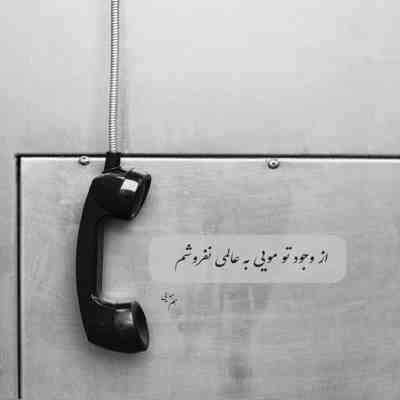 از وجود تو مویی به عالمی نفروشم